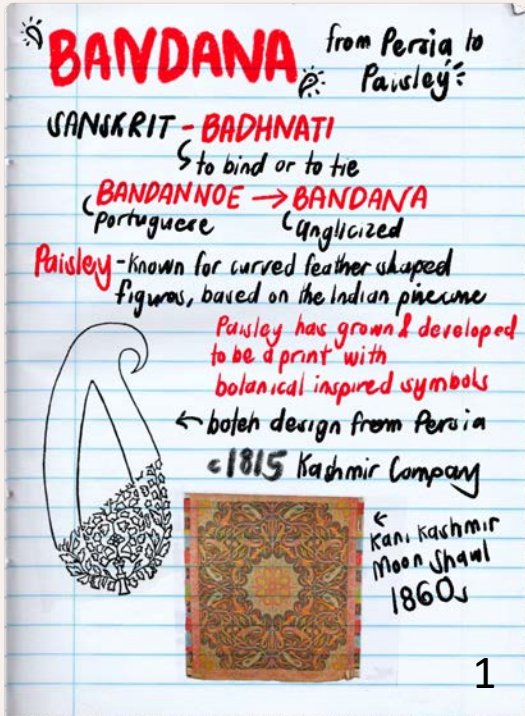 BANDANA from Persia to
Paisley
SANSKRIT - BADHNATI
to bind or to tie
BANDANNOE → BANDANA
portuguese anglicized
Paisley - Known for curved feather shaped
figures, based on the Indian pinecone
Paisley has grown & developed
to be a print with
botanical inspired symbols
← boteh design from Persia
c1815 Kashmir Company
Kani Kashmir
Moon Shawl
1860s
1